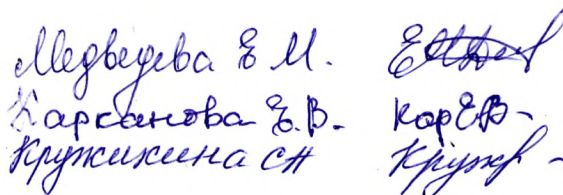 Медведева Е М.
Карханова Е.В. - Кар ЕВ -
Кружихина СН Круж -